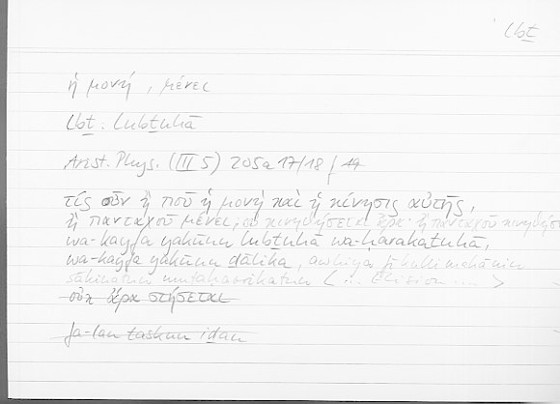 Lbṯ
ἡ μονή, μένει
Lbṯ. Lubṯuhā
Arist. Phys. (III 5) 205a 17/18 f 19
τίς οὖν ἢ ποῦ ἡ μονὴ καὶ ἡ κίνησις αὐτῆς,
ἢ πανταχοῦ μένει; οὐ κινηθήσεται ἄρα. ἢ πανταχοῦ κινηθήσε
wa-kayfa yakūnu lubṯuhā wa-ḥarakatuhā,
wa-kayfa yakūnu ḏālika, a-wa-hiya fī kulli makānin
sākinatun mutaḥarrikatun < ... Elision ... >
οὐκ ἄρα στήσεται
fa-lan taskun iḏan